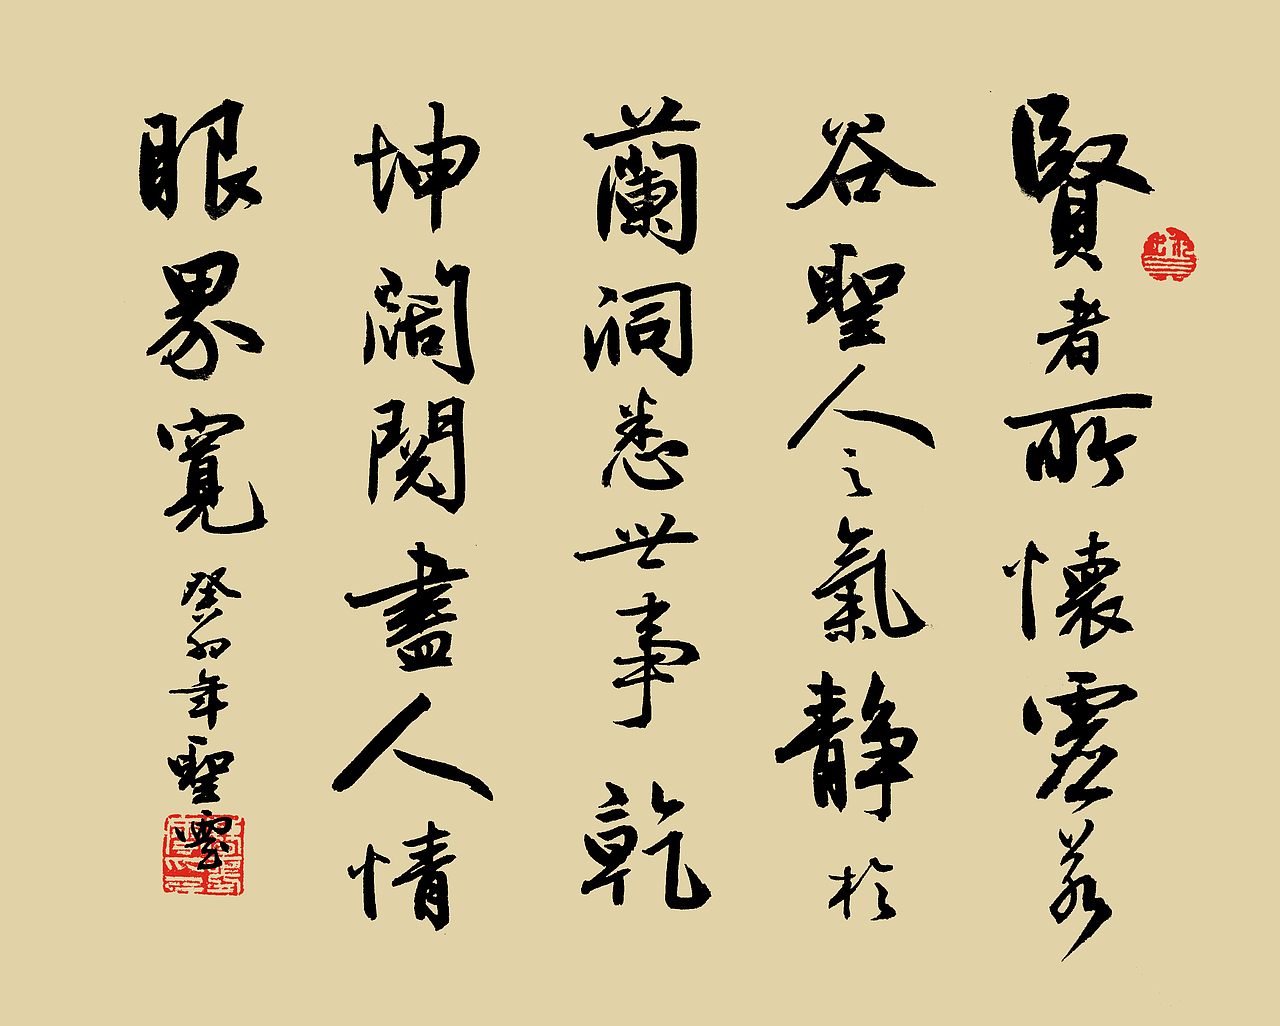 賢者所懷虛若
谷聖人之氣静於
蘭洞悉世事乾
坤闊閱盡人情
眼界寬
癸卯年聖雲